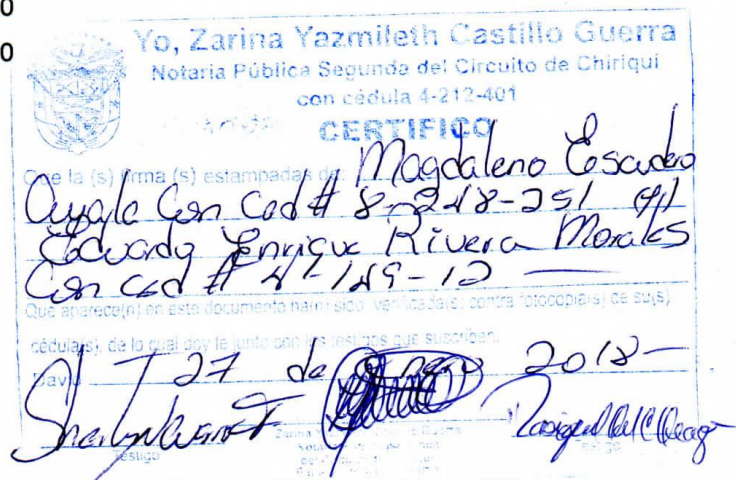 0
0
Yo, Zarina Yazmileth Castillo Guerra
Notaria Pública Segunda del Circuito de Chiriqui
con cédula 4-212-401
CERTIFICO
Que la (s) firma (s) estampadas de: Magdaleno Escudero
Ayala Con Ced # 8-248-251
Eduardo Enrique Rivera Morales
Con ced # 4-149-12
Que aparece(n) en este documento ha(n) sido verificada(s) contra fotocopia(s) de su(s)
cédula(s), de lo cual doy fe junto con los testigos que suscriben.
David 27 de enero 2018
Testigo